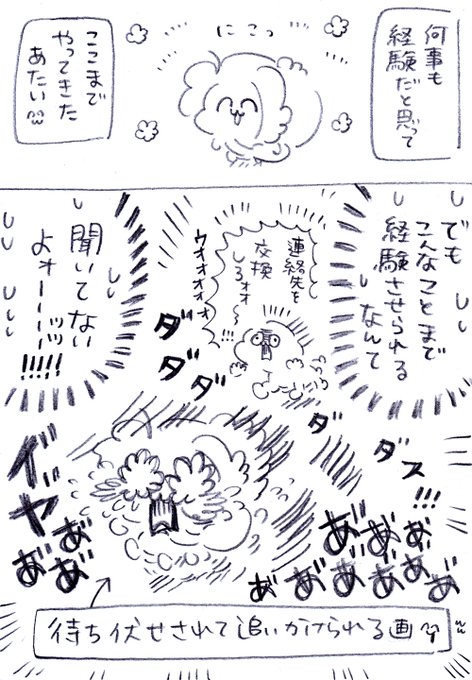 何事も
経験だと思って
にこっ
ここまで
やってきた
あたい
でも
こんなことまで
経験させられる
なんて
連絡先を
交換
しろォォ〜!!!
ウオォォォォォ
聞いてない
よォーーーッッ
!!!!!
ダダダ
ダダス!!!
イヤ
ああああ
あああああああ
待ち伏せされて追いかけられる画